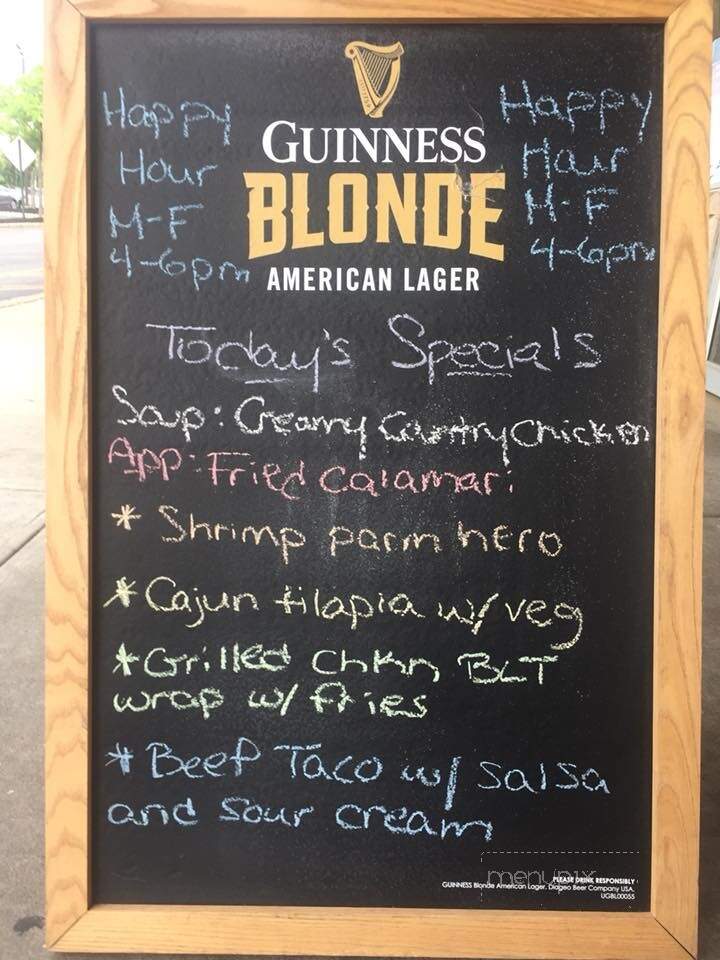 Happy
Hour
M-F
4-6pm
GUINNESS
BLONDE
AMERICAN LAGER
Happy
Hour
M-F
4-6pm
Today's Specials
Soup: Creamy Country Chicken
App: Fried Calamari
* Shrimp parm hero
* Cajun tilapia w/ veg
* Grilled Chkn BLT
wrap w/ fries
* Beef Taco w/ salsa
and Sour cream
menupix
PLEASE DRINK RESPONSIBLY
GUINNESS Blonde American Lager. Diageo Beer Company USA.
UGBL00055